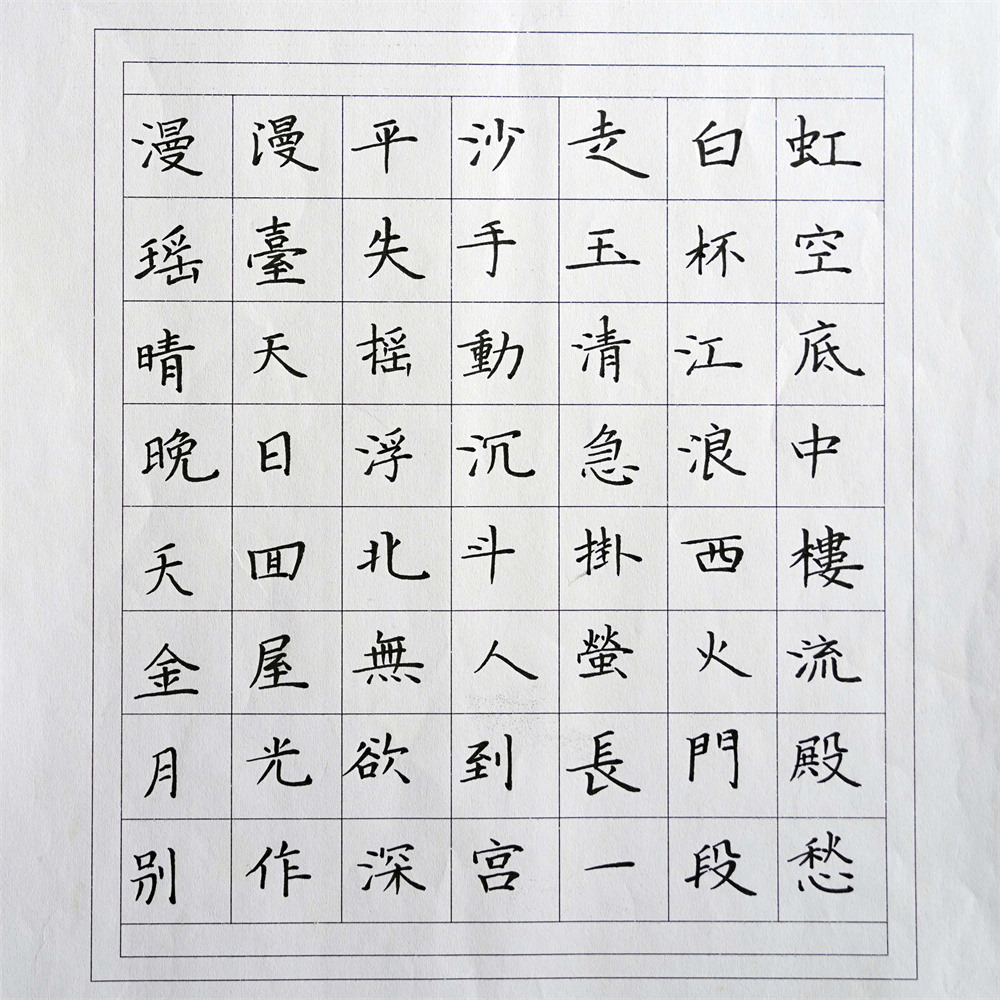 漫漫平沙走白虹
瑶臺失手玉杯空
晴天摇動清江底
晚日浮沉急浪中
天囬北斗掛西樓
金屋無人螢火流
月光欲到長門殿
别作深宫一段愁